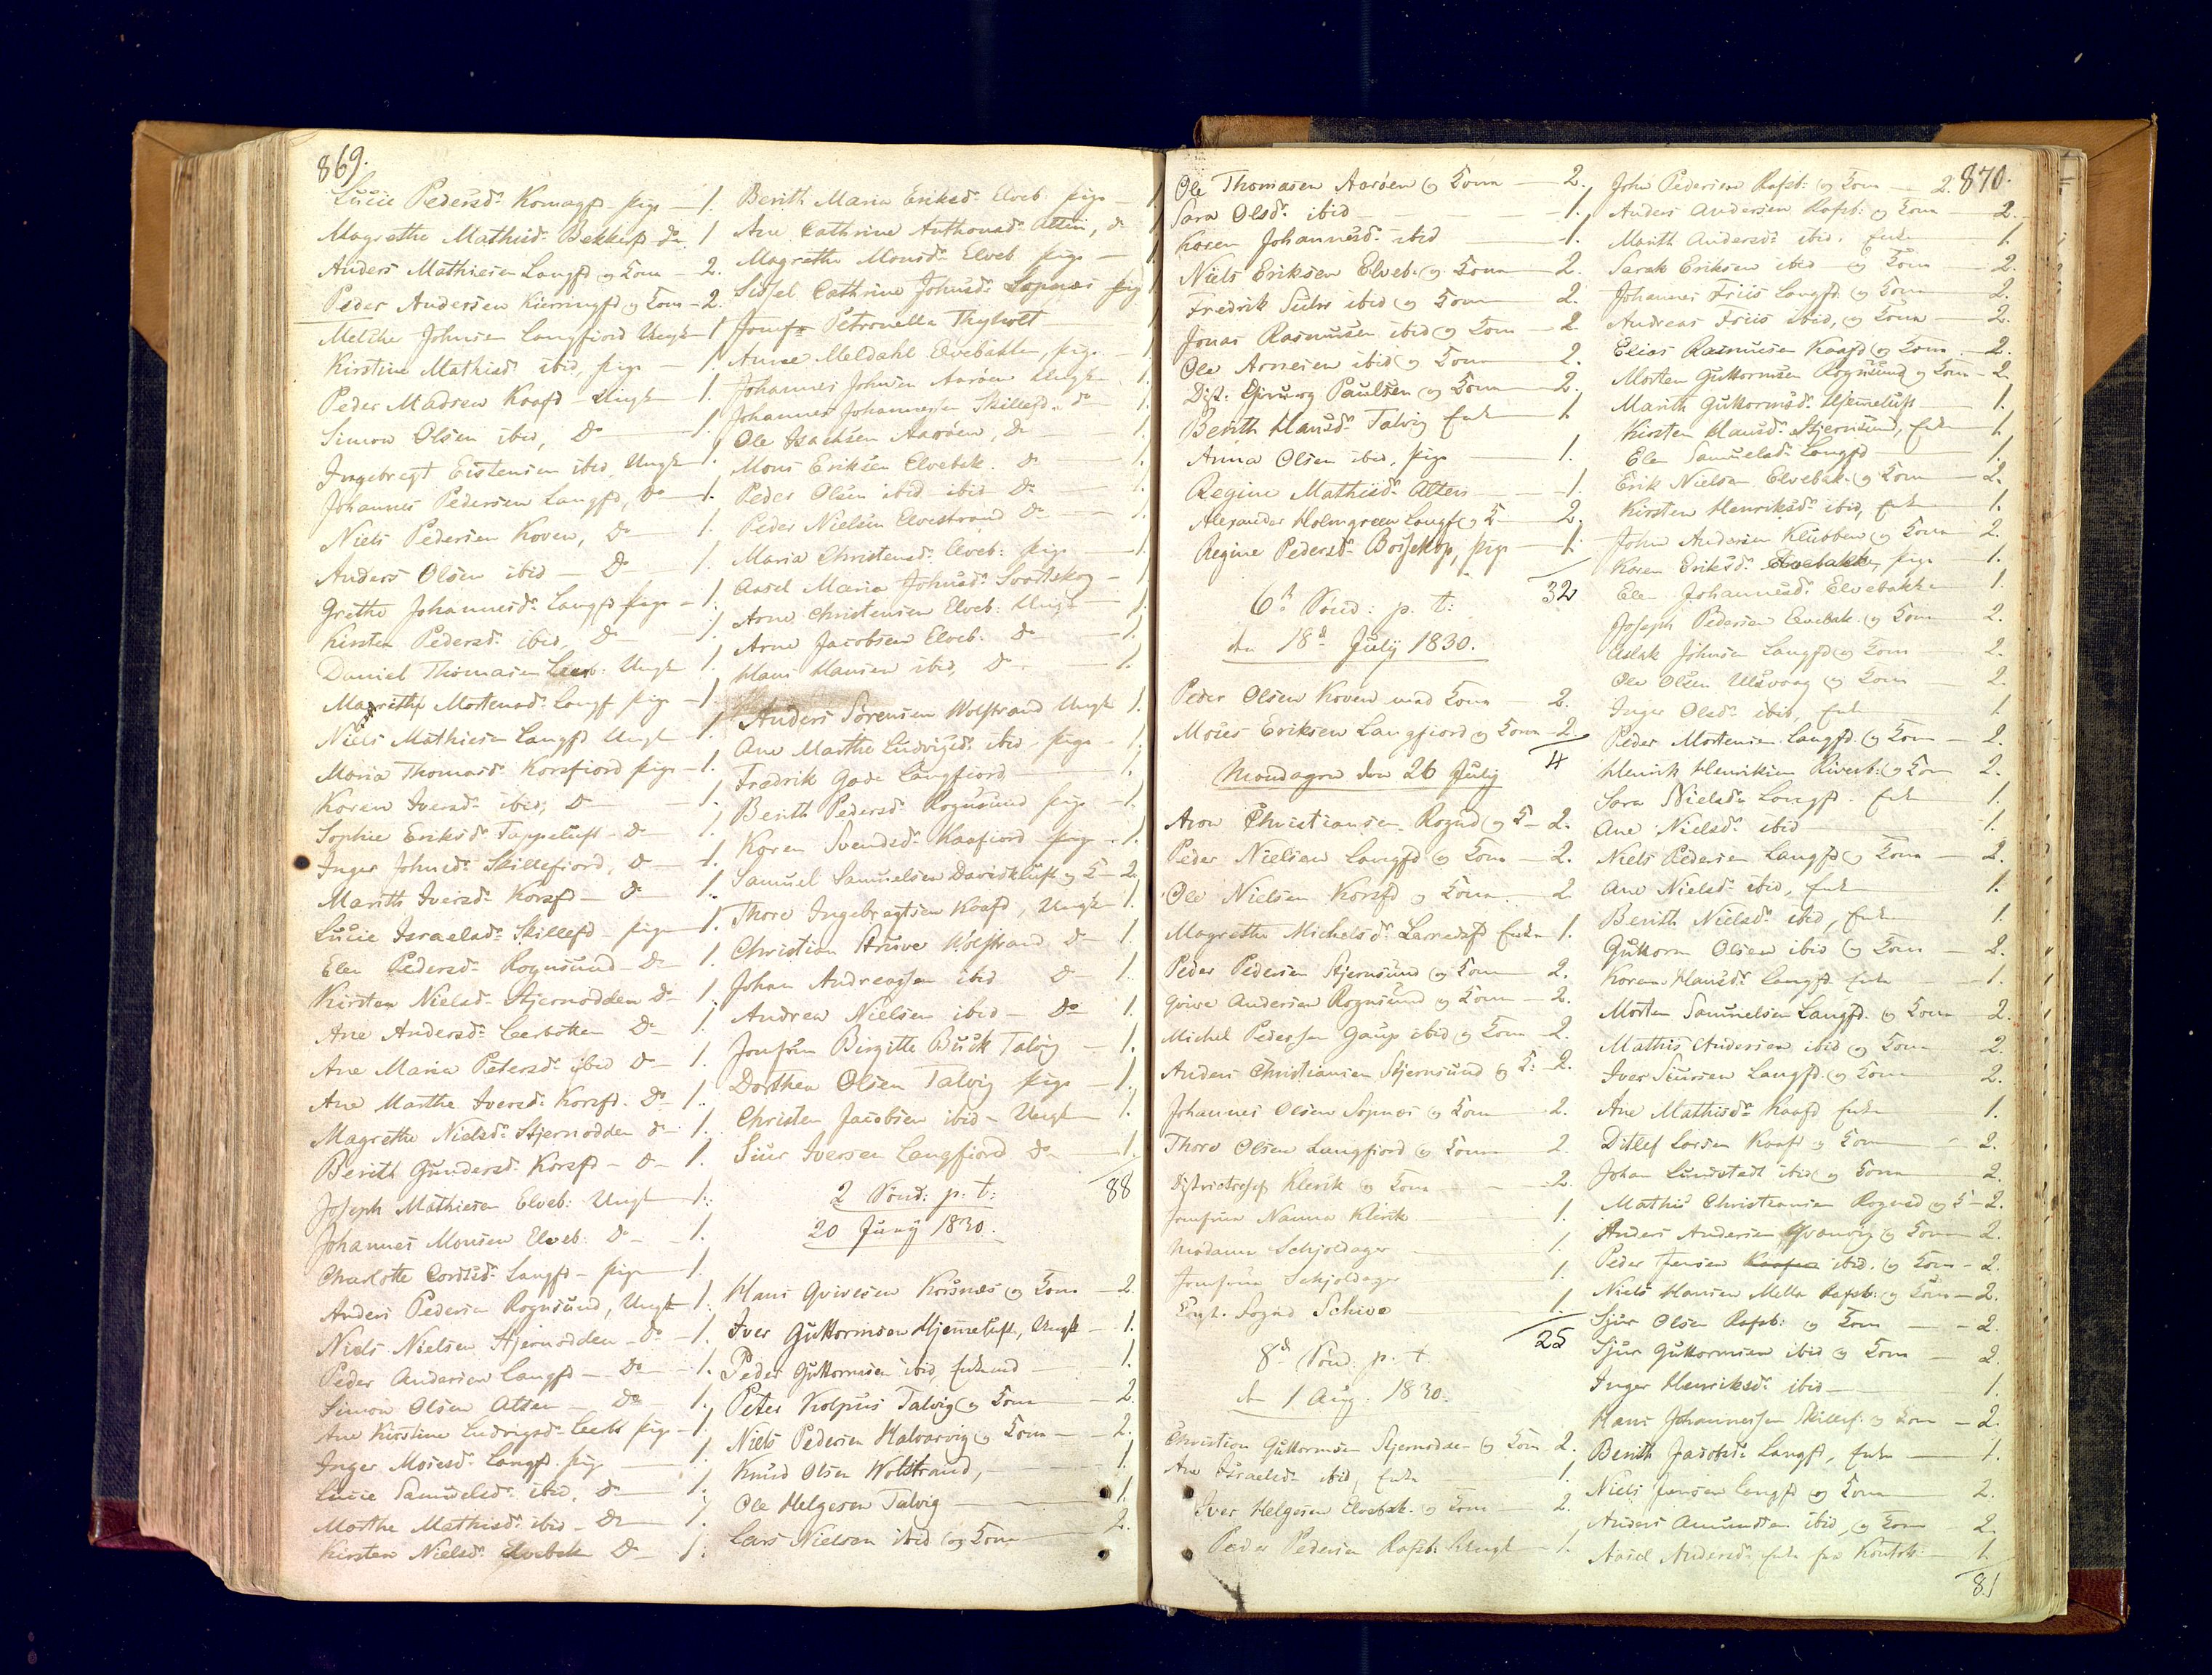 869.
Lucie Pedersd. Komagf. pige — 1.
Magrethe Mathisd. Bekkerf. do. 1
Anders Mathiesen Langfd og Kone — 2.
Peder Andersen Kierringfd og Kone — 2.
Johnsen Langfiord Ungk. 1
Kirstine Mathisd. ibid, pige — 1.
Peder Madsen Kaafd — Ungk. 1.
Simon Olsen ibid, Do — 1.
Ingebregt Eistensen ibid, Ungk. 1.
Johannes Pedersen Langfd, Do — 1.
Niels Pedersen Koven, Do — 1.
Anders Olsen ibid — Do — 1.
Grethe Johannesd. Langfd pige — 1.
Kirsten Pedersd. ibid, Do — 1
Daniel Thomasen Leerb. Ungk. 1.
Mortensd. Langf. pige — 1.
Niels Mathiesen Langfd Ungk. 1
Maria Thomasd. Korsfiord pige — 1.
Karen Iversd. ibid, Do — 1.
Sophie Eriksd. Tappeluft — Do — 1.
Inger Johnsd. Skillefiord, Do — 1.
Marith Iversd. Korsfd — Do — 1.
Lucie Israelsd. Skillefd — pige — 1.
Elen Pedersd. Rognsund — Do — 1.
Kirsten Nielsd. Stjernodden Do — 1.
Ane Andersd. Leerbotten Do — 1.
Ane Maria Petersd. ibid Do — 1.
Ane Marthe Iversd. Korsfd. Do — 1.
Magrethe Nielsd. Stjernodden do — 1.
Berith Gundersd. Korsfd — Do — 1.
Joseph Mathiesen Elveb. Ungk. 1.
Johannes Monsen Elveb. Do — 1.
Charlotte Langfd — pige — 1.
Anders Pedersen Rognsund, Ungk. 1.
Niels Nielsen Stjernodden — Do — 1.
Peder Andersen Langfd — Do — 1.
Simon Olsen Alten — Do — 1.
Ane Kirstine Ludvigsd. Leerb. pige — 1
Inger Moiesd. Langf. pige — 1
Lucie Samuelsd. ibid. Do — 1.
Marthe Mathisd. ibid — Do — 1.
Kirsten Nielsd. Elvebak Do — 1.
Berith Maria Eriksd. Elveb. pige — 1
Ane Cathrine Anthonsd. Alten, do 1
Magrethe Monsd. Elveb. pige — 1
Sidsel Cathrine Johnsd. Sopnæs pige 1
Jomf. Petronella Thyholt 1
Anne Meldahl Elvebakken, pige — 1.
Johannes Johnsen Aarøen Ungk. 1.
Johannes Johannesen Skillefd. do 1.
Ole Isachsen Aarøen, Do — 1.
Mons Eriksen Elvebak. Do — 1.
Peder Olsen ibid ibid Do — 1.
Peder Nielsen Elvestrand Do — 1.
Maria Christensd. Elveb. pige — 1.
Aasel Maria Johnsd. Svartskog — 1.
Arne Christensen Elveb. Ungk. — 1.
Arne Jacobsen Elveb. Do — 1.
Hans Hansen ibid, Do — 1.
Anders Sörensen Wolstrand Ungk. 1.
Ane Marthe Ludvigsd. ibid pige — 1.
Fredrik Gade Langfiord — 1.
Berith Pedersd. Rognsund pige — 1.
Karen Svendsd. Kaafiord pige — 1.
Samuel Samuelsen Davidkluft og K — 2
Thore Ingebregtsen Kaafd, Ungk. 1.
Christian Struve Wolstrand Do — 1.
Johan Andreassen ibid Do — 1.
Andrew Nielsen ibid — Do 1.
Jomfrue Birgitte Buck Talvig — 1.
Dorthea Olsen Talvig pige — 1.
Christen Jacobsen ibid — Ungk. 1.
Siur Iversen Langfiord Do — 1.
88
2 Sönd: p. t:
20 Juny 1830.
Hans Korsnæs og Kone — 2.
Iver Guttormsen Hjemmeluft, Ungk. — 1.
Peder Guttormsen ibid, Enkemd — 1.
Peter Kolpus Talvig og Kone — 2.
Niels Pedersen Halvarvig og Kone — 2.
Knud Olsen Wolstrand, — 1.
Ole Helgesen Talvig — 1.
Lars Nielsen ibid og Kone — 2.
Ole Thomasen Aarøen og Kone — 2.
Sara Olsd. ibid — 1.
Karen Johannesd. ibid — 1.
Niels Eriksen Elveb. og Kone — 2.
Fredrik Suhr ibid og Kone — 2.
Jonas Rasmusen ibid og Kone — 2.
Ole Arnesen ibid og Kone — 2.
Dist. Chirurg Paulsen og Kone — 2.
Berith Hansd. Talvig Enke — 1.
Anna Olsen ibid, pige — 1.
Regine Mathisd. Alten — 1.
Alexander Holmgreen Langf og K — 2.
Regine Pedersd. Bossekop, pige — 1.
32
6te Sönd: p. t:
den 18de July 1830.
Peder Olsen Koven med Kone — 2.
Moies Eriksen Langfiord og Kone — 2.
4
Mandagen den 26 July
Aron Christiansen Rognd og K — 2.
Peder Nielsen Langfd og Kone — 2.
Ole Nielsen Korsfd og Kone — 2
Magrethe Michelsd. Enke 1.
Peder Pedersen Stjernsund og Kone 2.
Andersen Rognsund og Kone — 2.
Michel Pedersen Gaup ibid og Kone — 2.
Anders Christiansen Stjernsund og K: 2.
Johannes Olsen Sopnæs og Kone 2.
Thore Olsen Langfiord og Kone 2.
Klerck og Kone — 2.
Jomfrue Nanna Klerck 1.
Madame Schjoldager 1.
Jomfrue Schjoldager 1.
Schive 1.
25
8de Sönd: p. t.
den 1 Aug. 1830.
Christian Guttormsen Stjernodden og Kone 2.
Ane Israelsd. ibid, Enke 1.
Iver Helgesen Elvebak. og Kone 2.
Peder Pedersen Rafsb. Ungk. 1.
870.
John Pedersen Rafsb. og Kone — 2.
Anders Andersen Rafsb. og Kone 2.
Marith Andersd. ibid. Enke 1.
Sarak Eriksen ibid og Kone 2.
Johannes Friis Langfd. og Kone 2.
Andreas Friis ibid, og Kone — 2.
Elias Rasmusen Kaafd og Kone — 2.
Morten Guttormsen Rognsund og Kone — 2.
Marith Guttormsd. Hjemmeluft 1.
Kirsten Hansd. Stjernsund, Enke 1.
Elen Samuelsd. Langfd 1.
Erik Nielsen Elvebak. og Kone 2.
Kirsten Henriksd. ibid, Enke 1.
John Andersen Klubben og Kone 2.
Karen Eriksd. Elvebakke, pige 1.
Elen Johannesd. Elvebakken 1.
Joseph Pedersen Elvebak. og Kone 2.
Aslak Johnsen Langfd og Kone 2.
Ole Olsen Ulsvaag og Kone 2.
Inger Olsd. ibid, Enke 1.
Peder Mortensen Langfd. og Kone 2.
Henrik Henriksen og Kone 2.
Sara Nielsd. Langfd. Enke 1.
Ane Nielsd. ibid 1.
Niels Pedersen Langfd og Kone 2.
Ane Nielsd. ibid, Enke 1.
Berith Nielsd. ibid, Enke 1.
Guttorm Olsen ibid og Kone 2.
Karen Hansd. Langfd. Enke 1.
Morten Samuelsen Langfd. og Kone 2.
Mathis Andersen ibid og Kone 2.
Iver Siursen Langfd. og Kone 2.
Ane Mathisd. Kaafd Enke 1.
Ditlef Larsen Kaafd og Kone 2.
Johan Lundstedt ibid og Kone 2.
Mathis Christiansen Rognsd og K — 2.
Anders Andersen Qvænvig og Kone 2.
Peder Iversen ibid. og Kone — 2.
Niels Hansen Mella Rafsb. og Kone — 2.
Sjur Olsen Rafsb. og Kone — 2.
Sjur Guttormsen ibid og Kone 2.
Inger Henriksd. ibid — 1.
Hans Johannessen Skillef. og Kone — 2.
Berith Jacobsd. Langfd, Enke 1.
Niels Jensen Langfd og Kone 2.
Anders Amundsen ibid, og Kone 2.
Aasel Andersd. Enke fra Koutok. 1.
81